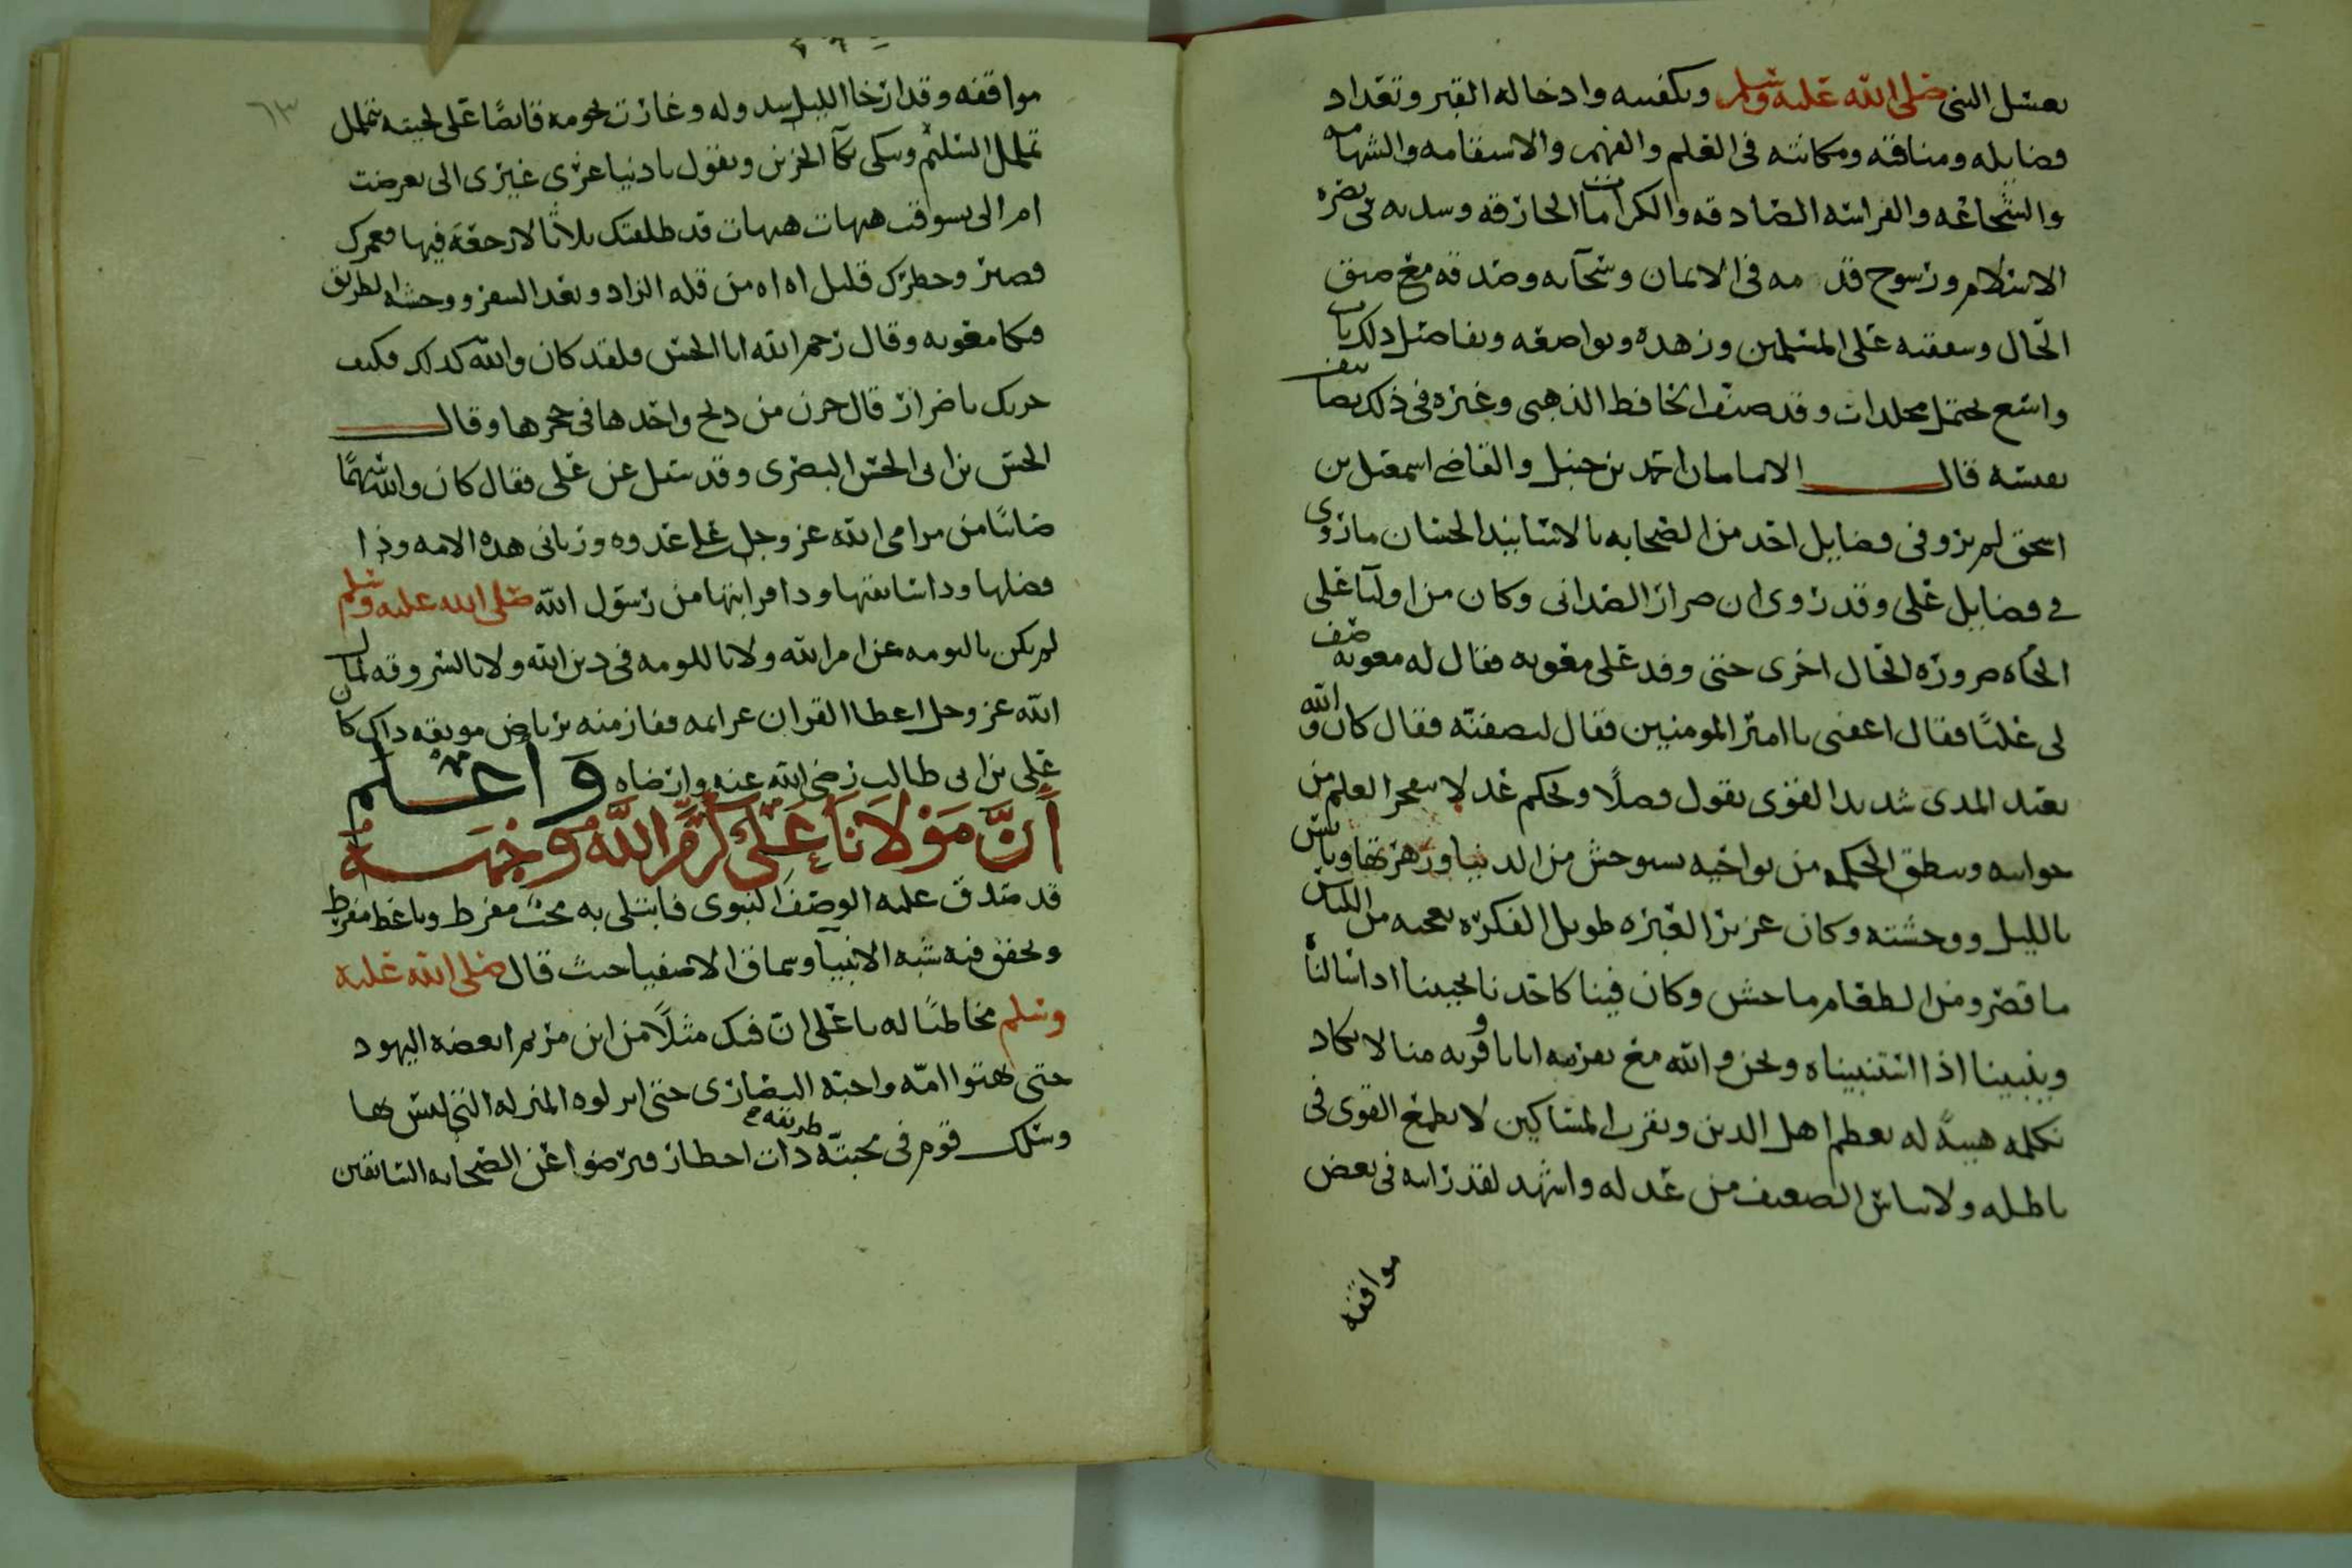 بغسل النبي صلى الله عليه وسلم وتكفينه وادخاله القبر وتعداد
فضايله ومناقبه ومكانته في العلم والفهم والاستقامه والشهامه
والشجاعه والفراسه الصادقه والكرامات الخارقه وشدته في نصره
الاسلام ورسوخ قدمه في الايمان وسخآيه وصدقه مع ضيق
الحال وشفقته على المسلمين وزهده وتواضعه وتفاصيل ذلك باب
واسع يحتمل مجلدات وقد صنف الحافظ الذهبي وغيره في ذلك تصانيف
نفيسه قال الامامان احمد بن حنبل والقاضي اسمعيل بن
اسحق لم يرو في فضايل احد من الصحابه بالاسانيد الحسان ما روى
في فضايل علي وقد روى ان ضرار الصدائي وكان من اوليآ علي
الجاه ضروره الحال اخرى حتى وفد على معويه فقال له معويه صف
لي عليًا فقال اعفني يا امير المومنين فقال لتصفنّه فقال كان والله
بعيد المدى شديد القوى يقول فصلًا ويحكم عدلا يتفجر العلم من
جوانبه وينطق الحكمه من نواحيه يستوحش من الدنيا وزهرتها ويانس
بالليل ووحشته وكان عزيز العبره طويل الفكره يعجبه من اللباس
ما قصر ومن الطعام ما خشن وكان فينا كاحدنا يجيبنا اذا سالناه
وينبينا اذا استنبيناه ونحن والله مع تقريبه ايانا وقربه منا لا نكاد
نكلمه هيبةً له يعظم اهل الدين ويقرب المساكين لا يطمع القوي في
باطله ولا يياس الضعيف من عدله واشهد لقد رايته في بعض
مواقفه
٦٣
مواقفه وقد ارخا الليل سدوله وغارت نجومه قابضًا على لحيته يتململ
تململ السليم ويبكي بكآ الحزين ويقول يا دنيا غري غيري الي تعرضت
ام الي تشوقت هيهات هيهات قد طلقتك ثلاثا لا رجعة فيها فعمرك
قصير وخطرك قليل اه اه من قله الزاد وبعد السفر ووحشه الطريق
فبكا معويه وقال رحم الله ابا الحسن فلقد كان والله كذلك فكيف
حزنك يا ضرار قال حزن من ذبح واحدها في حجرها وقال
الحسن بن ابي الحسن البصري وقد سئل عن علي فقال كان والله سهمًا
صائبًا من مرامي الله عز وجل على عدوه ورباني هذه الامه وذا
فضلها وذا سابقتها وذا قرابتها من رسول الله صلى الله عليه وسلم
لم يكن بالنومه عن امر الله ولا بالملومه في دين الله ولا بالسروقه لمال
الله عز وجل اعطا القران عزايمه ففاز منه برياض مونقه ذاك كان
علي بن ابي طالب رضي الله عنه وارضاه واعلم
أَنَّ مَوْلَانَا عَلي كَرَّمَ اللَّهُ وَجْهَه
قد صدق عليه الوصف النبوي فابتلي به محب مفرط وباغض مفرط
وتحقق فيه شبه الانبيآ وسماة الاصفيا حيث قال صلى الله عليه
وسلم مخاطبًا له يا علي ان فيك مثلًا من ابن مريم ابغضه اليهود
حتى بهتوا امّه واحبه النصارى حتى انزلوه المنزله التي ليس بها
وسلك قوم في محبته طريقه ذات اخطار فرضوا عن الصحابه السابقين